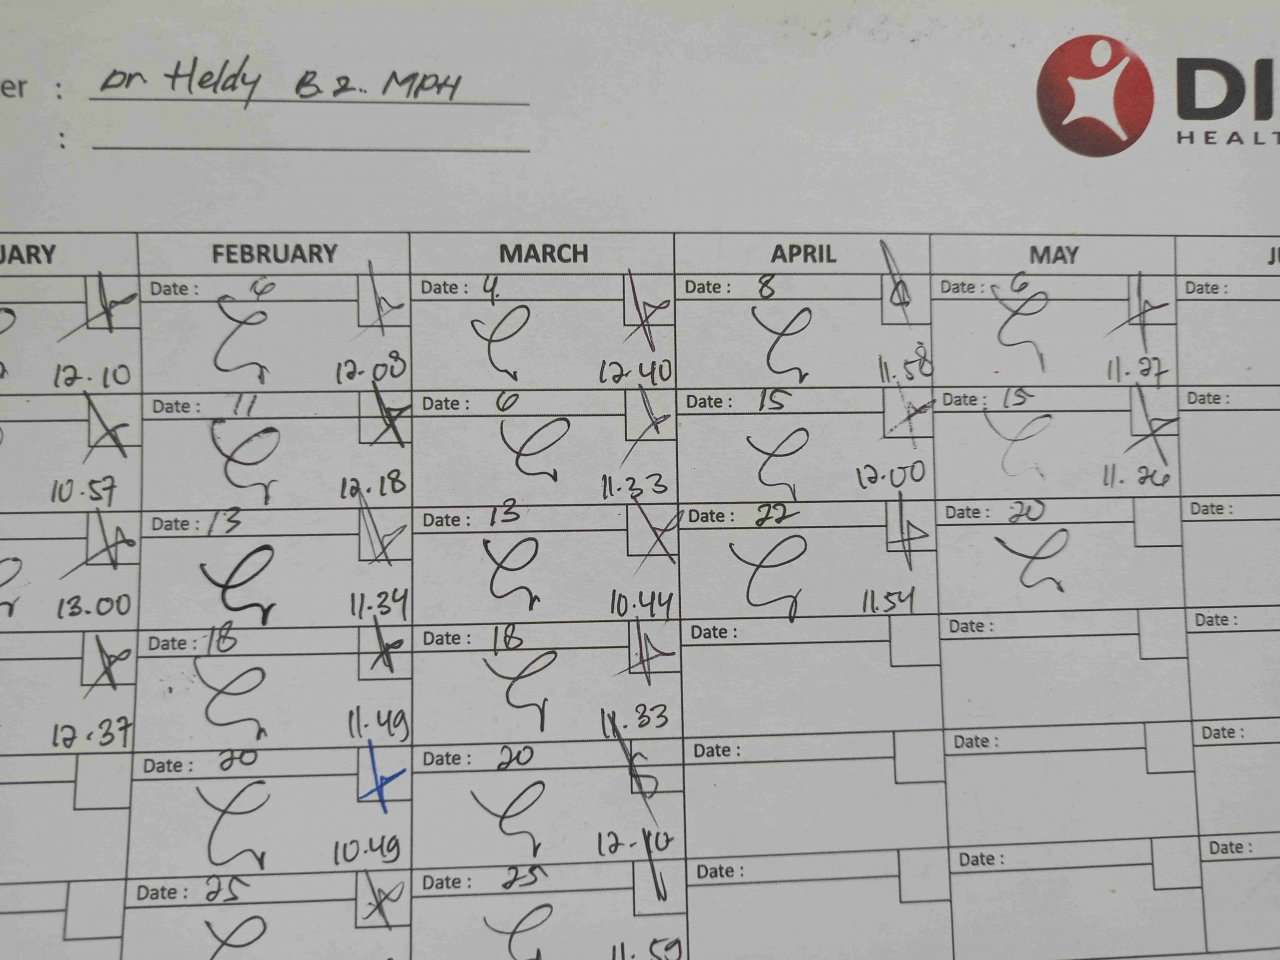 er : Dr Heldy B.Z.. MPH
:
DI
HEALT
UARY FEBRUARY MARCH APRIL MAY JU
Date : 6 Date : 4 Date : 8 Date : 6 Date :
12.10 12.08 12.40 11.58 11.27
Date : 11 Date : 6 Date : 15 Date : 15 Date :
10.57 12.18 11.33 12.00 11.26
Date : 13 Date : 13 Date : 22 Date : 20 Date :
13.00 11.34 10.44 11.54
Date : 18 Date : 18 Date : Date : Date :
12.37 11.49 11.33
Date : 20 Date : 20 Date : Date : Date :
10.49 12.10
Date : 25 Date : 25 Date : Date : Date :
11.59